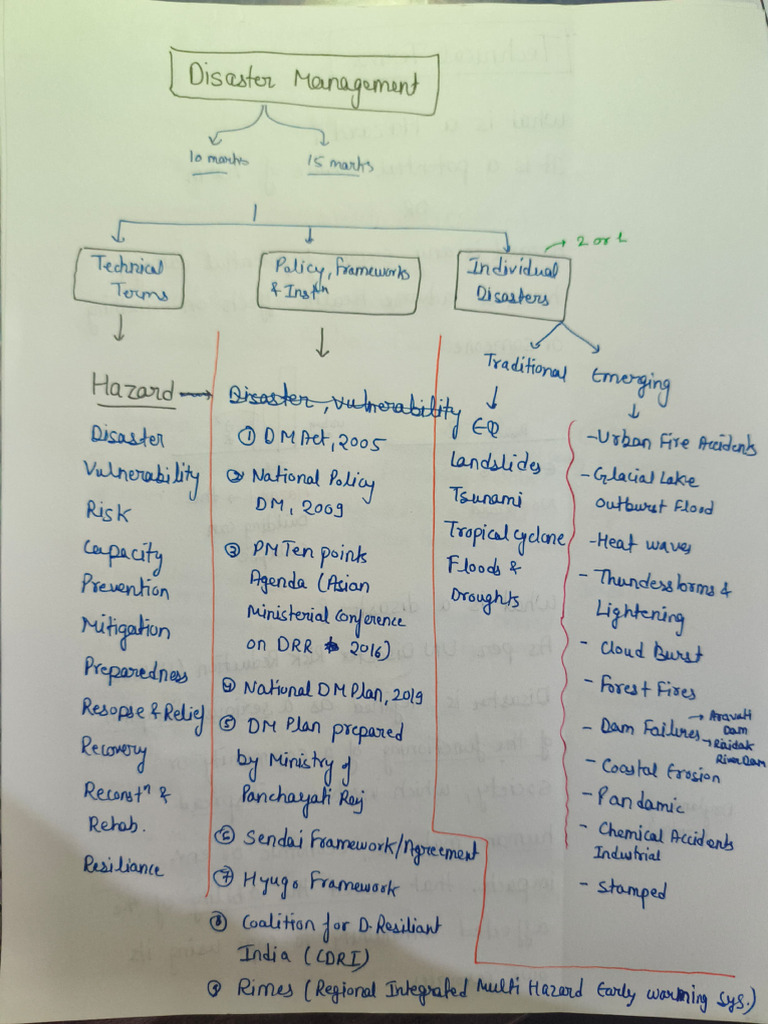 Disaster Management
10 marks
15 marks
2 or 1
Technical
Terms
Policy, Frameworks
& Instⁿ
Individual
Disasters
Traditional
Emerging
Hazard
Disaster
Vulnerability
Risk
Capacity
Prevention
Mitigation
Preparedness
Resopse & Relief
Recovery
Reconstⁿ &
Rehab.
Resiliance
Disaster, vulnerability
① DM Act, 2005
② National Policy
DM, 2009
③ PM Ten points
Agenda (Asian
Ministerial Conference
on DRR 2016)
④ National DM Plan, 2019
⑤ DM Plan prepared
by Ministry of
Panchayati Raj
⑥ Sendai Framework/Agreement
⑦ Hyugo Framework
⑧ Coalition for D. Resiliant
India (CDRI)
⑨ Rimes (Regional Integrated Multi Hazard Early warming sys.)
EQ
Landslides
Tsunami
Tropical cyclone
Floods &
Droughts
- Urban Fire Accidents
- Glacial Lake
Outburst Flood
- Heat waves
- Thunderstorms &
Lightening
- Cloud Burst
- Forest Fires
- Dam Failures
Dam
River Dam
- Coastal Erosion
- Pandamic
- Chemical Accidents
Industrial
- Stamped